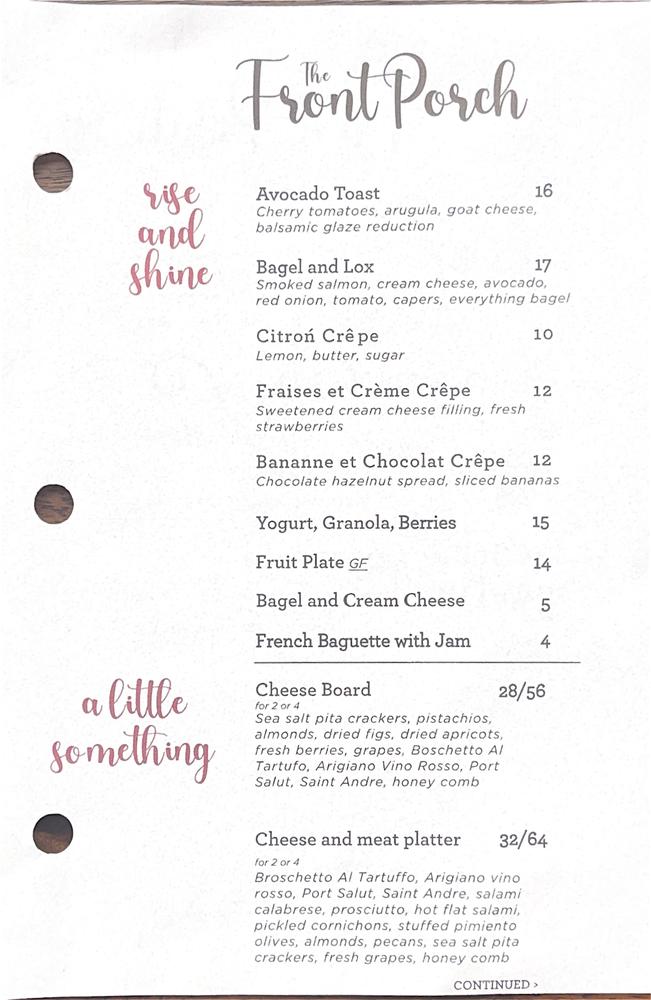 The
Front Porch
rise
and
shine
Avocado Toast 16
Cherry tomatoes, arugula, goat cheese,
balsamic glaze reduction
Bagel and Lox 17
Smoked salmon, cream cheese, avocado,
red onion, tomato, capers, everything bagel
Citroń Crêpe 10
Lemon, butter, sugar
Fraises et Crème Crêpe 12
Sweetened cream cheese filling, fresh
strawberries
Bananne et Chocolat Crêpe 12
Chocolate hazelnut spread, sliced bananas
Yogurt, Granola, Berries 15
Fruit Plate GF 14
Bagel and Cream Cheese 5
French Baguette with Jam 4
a little
something
Cheese Board 28/56
for 2 or 4
Sea salt pita crackers, pistachios,
almonds, dried figs, dried apricots,
fresh berries, grapes, Boschetto Al
Tartufo, Arigiano Vino Rosso, Port
Salut, Saint Andre, honey comb
Cheese and meat platter 32/64
for 2 or 4
Broschetto Al Tartuffo, Arigiano vino
rosso, Port Salut, Saint Andre, salami
calabrese, prosciutto, hot flat salami,
pickled cornichons, stuffed pimiento
olives, almonds, pecans, sea salt pita
crackers, fresh grapes, honey comb
CONTINUED >